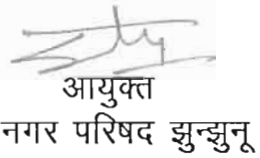 आयुक्त
नगर परिषद झुन्झुनू